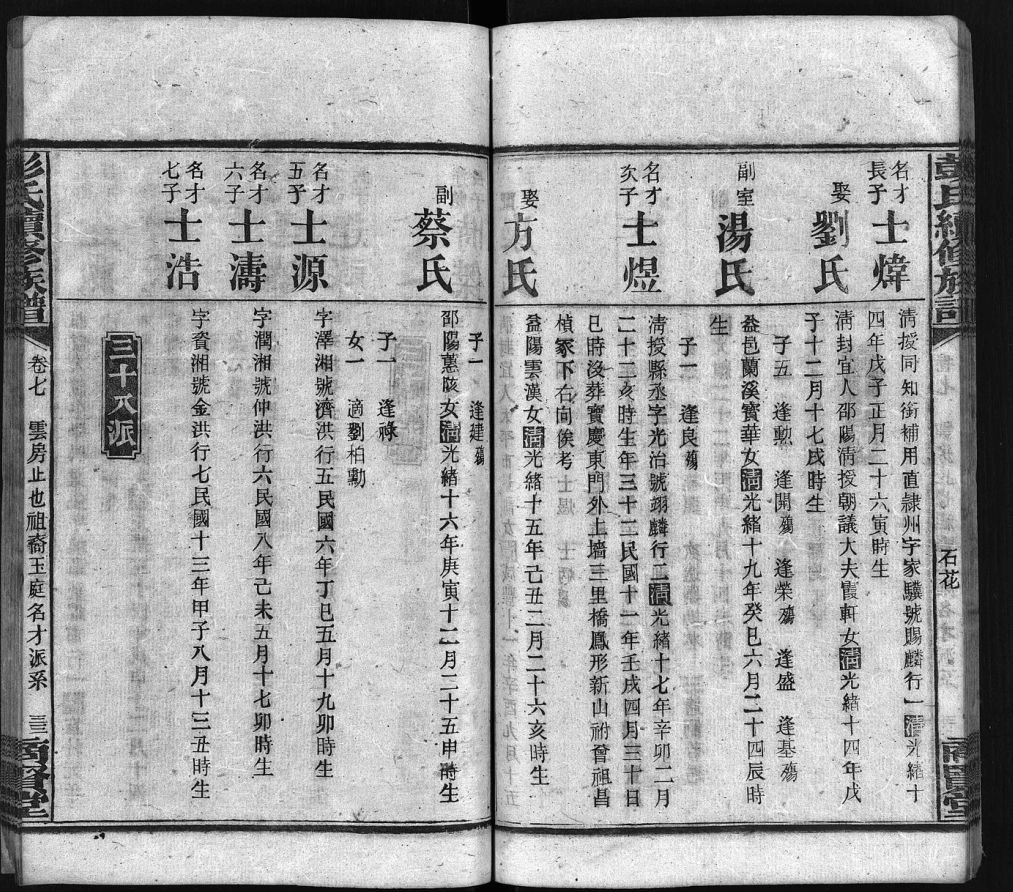 彭氏續修族譜
石花
名才
長子
士煒
清授同知銜補用直隷州字家驥號賜麟行一清光緒十
四年戊子正月二十六寅時生
娶
劉氏
清封宜人邵陽清授朝議大夫霞軒女清光緒十四年戊
子十二月十七戌時生
子五 逢勲 逢開殤 逢榮殤 逢盛 逢基殤
副室
湯氏
益邑蘭溪寳華女清光緒十九年癸巳六月二十四辰時
生
子一 逢良殤
名才
次子
士煜
清授縣丞字光治號翊麟行二清光緒十七年辛卯二月
二十二亥時生年三十二民國十一年壬戌四月三十日
巳時沒葬寳慶東門外上墻三里橋鳳形新山祔曾祖昌
楨冢下右向俟考
娶
方氏
益陽雲漢女清光緒十五年己丑二月二十六亥時生
子一 逢建殤
副
蔡氏
邵陽蕙陔女清光緒十六年庚寅十二月二十五申時生
子一 逢祿
女一 適劉柏勳
名才
五子
士源
字澤湘號濟洪行五民國六年丁巳五月十九卯時生
名才
六子
士濤
字潤湘號仲洪行六民國八年己未五月十七卯時生
名才
七子
士浩
字資湘號金洪行七民國十三年甲子八月十三丑時生
三十八派
彭氏續修族譜
卷七
雲房止也祖裔玉庭名才派系
商賢堂